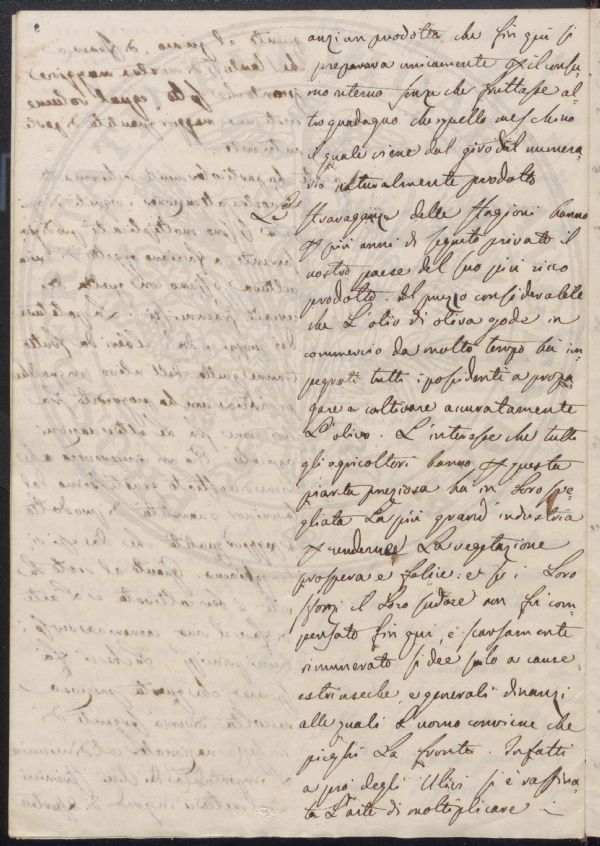 anzi un prodotto che fin quì si
preparava unicamente p il consu=
mo interno senza che fruttasse al=
tro guadagno che quello meschino
il quale viene dal giro del numera=
rio naturalmente prodotto
La stravaganza delle stagioni hanno
p più anni di seguito privato il
nostro paese del suo più ricco
prodotto. Il prezzo considerabile
che L'olio di oliva gode in
commercio da molto tempo ha im=
pegnati tutti i possidenti a propa
gare e coltivare accuratamente
L'olivo. L'interesse che tutti
gli agricoltori hanno p questa
pianta preziosa ha in Loro sve=
gliata La più grand' industria
p renderne La vegetazione
prospera e felice: e se i Loro
sforzi il Loro sudore non fu com=
pensato fin quì, e scarsamente
rimunerato si dee solo a cause
estrinseche, e generali dinanzi
alle quali L'uomo conviene che
pieghi La fronte. Infatti
a prò degli Ulivi si è raffina=
ta L'arte di moltiplicare